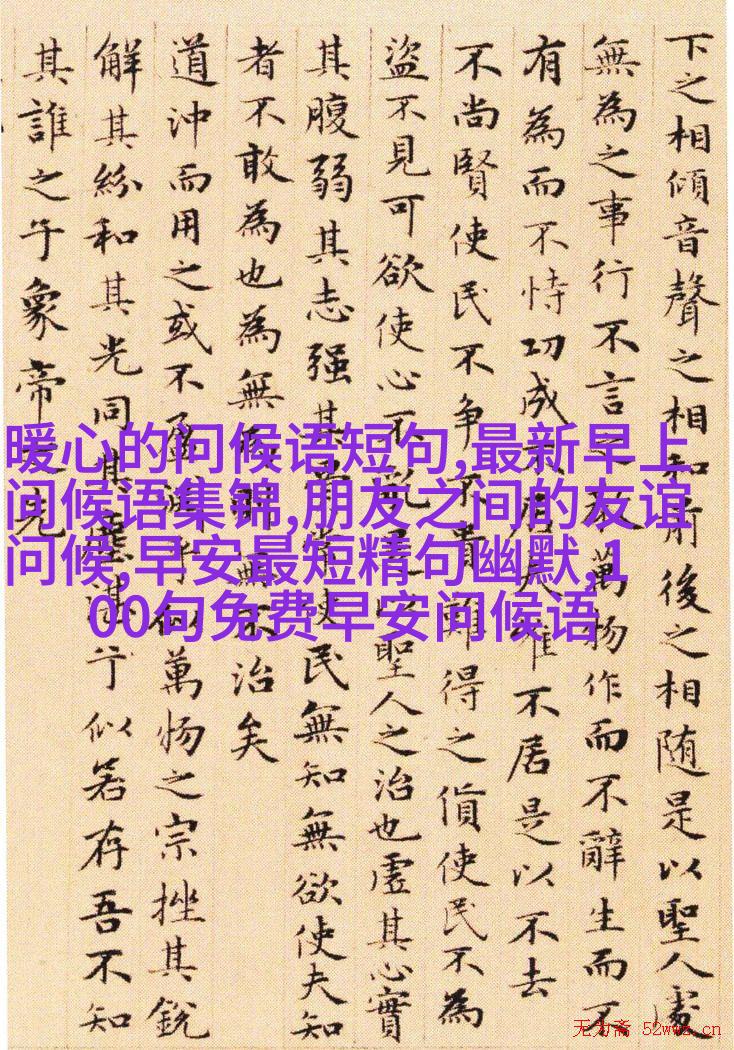 下之相傾音聲之相和前後之相随是以聖人處
無為之事行不言之教萬物作而不辭生而不
有為而不恃功成不居夫唯不居是以不去
不尚賢使民不争不貴難得之貨使民不為
盜不見可欲使心不亂是以聖人之治也虛其心實
其腹弱其志强其骨常使民無知無欲使夫知
者不敢為也為無為則無不治矣
道沖而用之或不盈淵乎似萬物之宗挫其銳
解其紛和其光同其塵湛乎似若存吾不知
其誰之子象帝之先
暖心的问候语短句,最新早上
问候语集锦,朋友之间的友谊
问候,早安最短精句幽默,1
00句免费早安问候语
无为斋 52wwz.cn